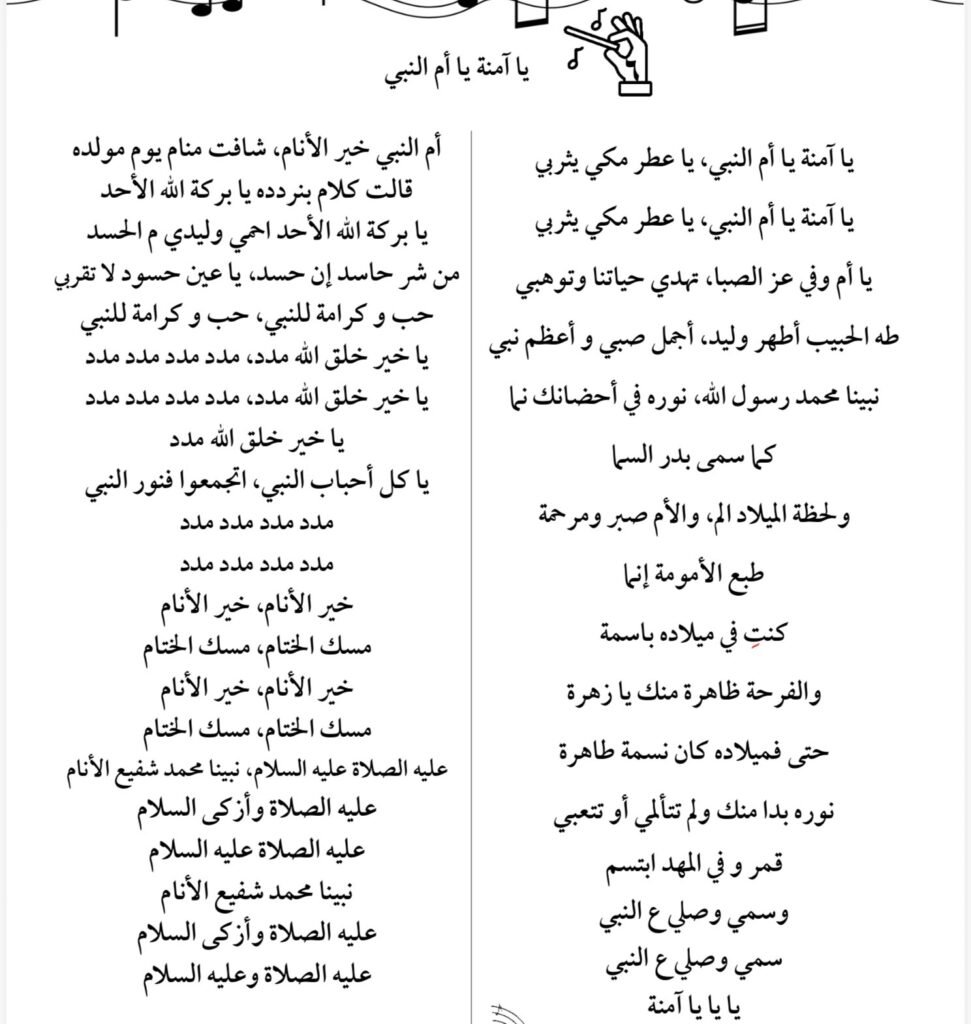 يا آمنة يا أم النبي
يا آمنة يا أم النبي، يا عطر مكي يثربي
يا آمنة يا أم النبي، يا عطر مكي يثربي
يا أم وفي عز الصبا، تهدي حياتنا وتوهبي
طه الحبيب أطهر وليد، أجمل صبي و أعظم نبي
نبينا محمد رسول الله، نوره في أحضانك نما
كما سمى بدر السما
ولحظة الميلاد الم، والأم صبر ومرحمة
طبع الأمومة إنما
كنتِ في ميلاده باسمة
والفرحة ظاهرة منك يا زهرة
حتى فميلاده كان نسمة طاهرة
نوره بدا منك ولم تتألمي أو تتعبي
قمر و في المهد ابتسم
وسمي وصلي ع النبي
سمي وصلي ع النبي
يا يا يا يا آمنة
أم النبي خير الأنام، شافت منام يوم مولده
قالت كلام بنردده يا بركة الله الأحد
يا بركة الله الأحد احمي وليدي م الحسد
من شر حاسد إن حسد، يا عين حسود لا تقربي
حب و كرامة للنبي، حب و كرامة للنبي
يا خير خلق الله مدد، مدد مدد مدد مدد
يا خير خلق الله مدد، مدد مدد مدد مدد
يا خير خلق الله مدد
يا كل أحباب النبي، اتجمعوا فنور النبي
مدد مدد مدد مدد
مدد مدد مدد مدد
خير الأنام، خير الأنام
مسك الختام، مسك الختام
خير الأنام، خير الأنام
مسك الختام، مسك الختام
عليه الصلاة عليه السلام، نبينا محمد شفيع الأنام
عليه الصلاة وأزكى السلام
عليه الصلاة عليه السلام
نبينا محمد شفيع الأنام
عليه الصلاة وأزكى السلام
عليه الصلاة وعليه السلام